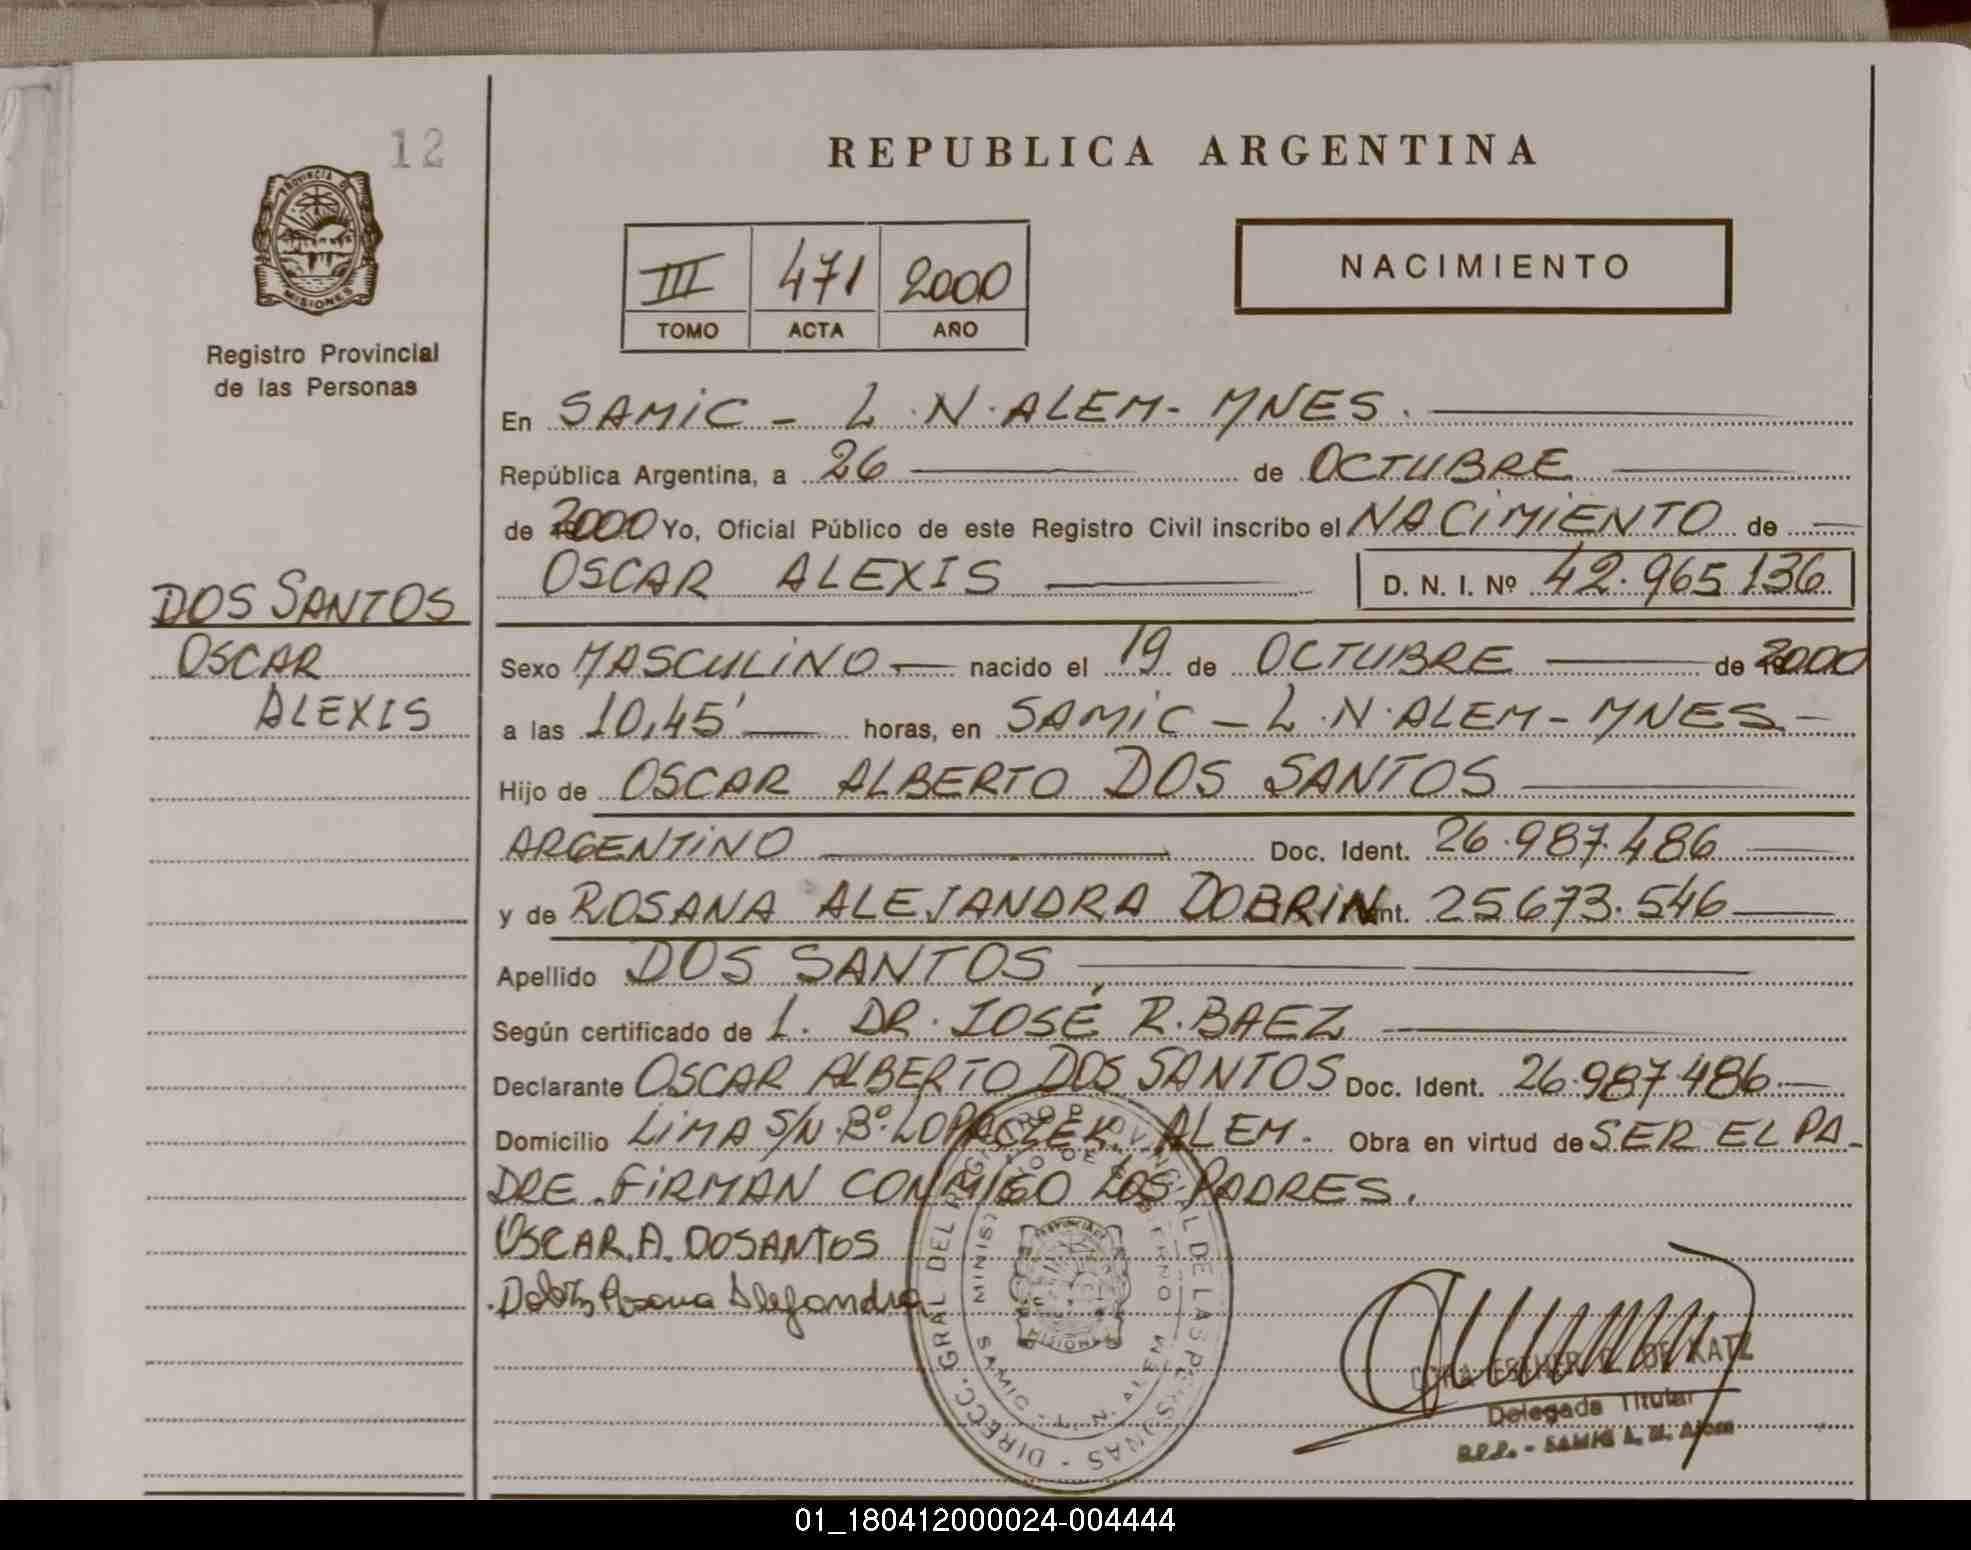 12
REPUBLICA ARGENTINA
III 471 2000
TOMO ACTA AÑO
NACIMIENTO
PROVINCIA DE
MISIONES
Registro Provincial
de las Personas
En SAMIC - L.N. ALEM - MNES.
República Argentina, a 26 de OCTUBRE
de 2000 Yo, Oficial Público de este Registro Civil inscribo el NACIMIENTO de
OSCAR ALEXIS D. N. I. Nº 42.965.136
DOS SANTOS
OSCAR
ALEXIS
Sexo MASCULINO nacido el 19 de OCTUBRE de 2000
a las 10,45' horas, en SAMIC - L.N. ALEM - MNES -
Hijo de OSCAR ALBERTO DOS SANTOS
ARGENTINO Doc. Ident. 26.987.486
y de ROSANA ALEJANDRA DOBRIN nt. 25673.546
Apellido DOS SANTOS
Según certificado de 1. DR. JOSÉ R. BAEZ
Declarante OSCAR ALBERTO DOS SANTOS Doc. Ident. 26.987.486.
Domicilio LIMA S/N. Bº. LOPACZEK. ALEM. Obra en virtud de SER EL PA-
DRE. FIRMAN CONMIGO LOS PADRES.
OSCAR. A. DOSANTOS
Rosana Alejandra
DIRECC. GRAL DEL REGISTRO PROVINCIAL DE LAS PERSONAS
MINISTERIO DE GOBIERNO
SAMIC - L. N. ALEM
ESTHER DE KATZ
Delegada Titular
R.P.P. - SAMIC L. N. Alem
01_180412000024-004444